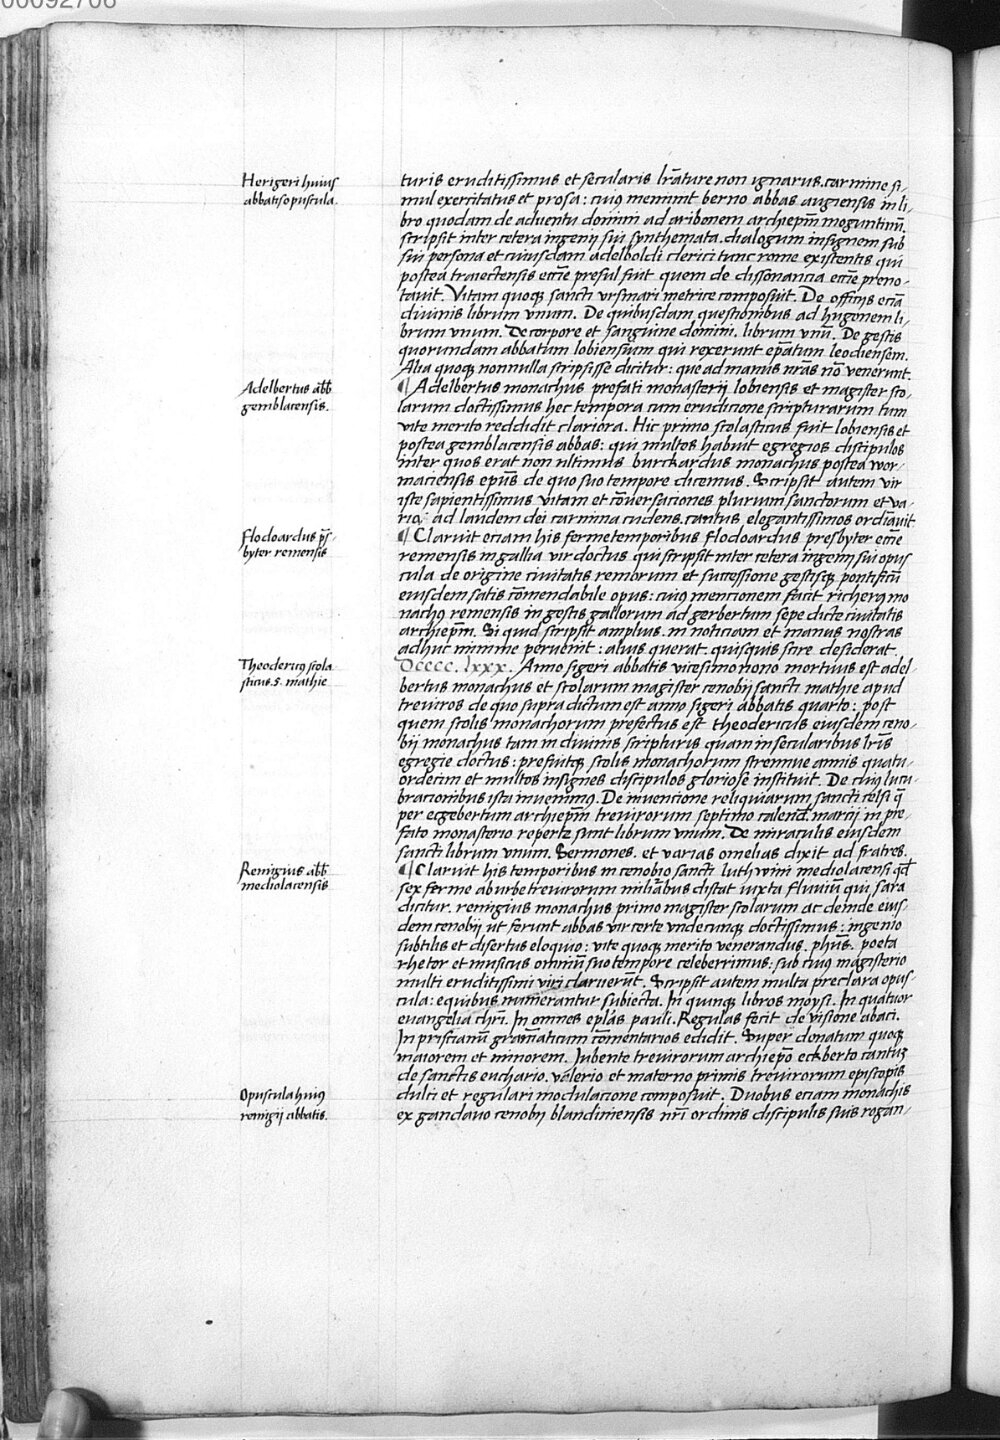 00092706
Herigeri huius
abbatis opuscula.
turis eruditissimus et secularis lr̄ature non ignarus. carmine si-
mul exercitatus et prosa: cuiꝯ meminit berno abbas augiensis in li-
bro quodam de aduentu domini ad aribonem archiep̄m moguntinū.
scripsit inter cetera ingenij sui synthemata. dialogum insignem sub
sui persona et cuiusdam adelboldi clerici tunc rome existentis qui
postea traiectensis ecc̄ie presul fuit quem de dissonancia ecc̄ie preno-
tauit. Vitam quoqꝫ sancti vrsmari metrice composuit. De officijs eciā
diuinis librum vnum. De quibusdam questionibus ad hugonem li-
brum vnum. De corpore et sanguine domini. librum vnū. De gestis
quorundam abbatum lobiensium qui rexerunt ep̄atum leodiensem.
Alia quoqꝫ nonnulla scripsisse dicitur: que ad manus nr̄as nō venerunt.
Adelbertus abb̄
gemblacensis.
¶ Adelbertus monachus prefati monasterij lobiensis et magister sco-
larum doctissimus hec tempora cum erudicione scripturarum tum
vite merito reddidit clariora. Hic primo scolasticus fuit lobiensis et
postea gemblacensis abbas: qui multos habuit egregios discipulos
inter quos erat non ultimus burckardus monachus postea wor-
maciensis ep̄us de quo suo tempore dicemus. Scripsit autem vir
iste sapientissimus vitam et cōuersaciones plurium sanctorum et va-
ria: ad laudem dei carmina cudens. cantus elegantissimos ordīauit
Flodoardus p̄s-
byter remensis
¶ Claruit eciam his ferme temporibus flodoardus presbyter ecc̄ie
remensis in gallia vir doctus. qui scripsit inter cetera ingenij sui opus
cula. de origine ciuitatis remorum et successione gestisqꝫ pontificū
eiusdem satis cōmendabile opus: cuiꝯ mencionem facit richerꝯ mo
nachꝯ remensis in gestis gallorum ad gerbertum sepe dicte ciuitatis
archiep̄m. Si quid scripsit amplius. in noticiam et manus nostras
adhuc minime peruenit: alius querat. quisquis scire desiderat.
Theodericꝯ scola
sticus. s. mathie
Dcccc. lxxx. Anno sigeri abbatis vicesimo nono mortuus est adel
bertus monachus et scolarum magister cenobij sancti mathie apud
treuiros de quo supra dictum est anno sigeri abbatis quarto: post
quem scolis monachorum prefectus est theodericus eiusdem ceno-
bij monachus tam in diuinis scripturis quam in secularibus lr̄is
egregie doctus: prefuitqꝫ scolis monachorum strennue annis quatu-
ordecim et multos insignes discipulos gloriose instituit. De cuiꝯ lucu-
bracionibus ista inuenimꝯ. De inuencione reliquiarum sancti celsi q̄
per ecgebertum archiep̄m treuirorum septimo calend. marcij in pre-
fato monasterio reperte sunt librum vnum. De miraculis eiusdem
sancti librum vnum. Sermones. et varias omelias dixit ad fratres.
Remigius abb̄
mediolacensis
¶ Claruit his temporibus in cenobio sancti luthwini mediolacensi qd̄
sex ferme ab urbe treuirorum miliaribus distat iuxta fluuiū qui sara
dicitur. remigius monachus primo magister scolarum ac deinde eius-
dem cenobij ut ferunt abbas vir certe vndecunqꝫ doctissimus: ingenio
subtilis et disertus eloquio: vite quoqꝫ merito venerandus. ph̄us. poeta
rhetor et musicus omniū suo tempore celeberrimus: sub cuiꝯ magisterio
multi eruditissimi viri claruerūt. Scripsit autem multa preclara opus-
cula: e quibus numerantur subiecta. In quinqꝫ libros moysi. In quatuor
euangelia chr̄i. In omnes ep̄las pauli. Regulas fecit de visione abaci.
In priscianū gram̄aticum cōmentarios edidit. Super donatum quoqꝫ
maiorem et minorem. Iubente treuirorum archiep̄o eckberto cantus
de sanctis euchario. valerio et materno primis treuirorum episcopis
Opuscula huiꝯ
remigij abbatis.
dulci et regulari modulacione composuit. Duobus eciam monachis
ex gandauo cenobij blandiniensis nr̄i ordinis discipulis suis rogan-